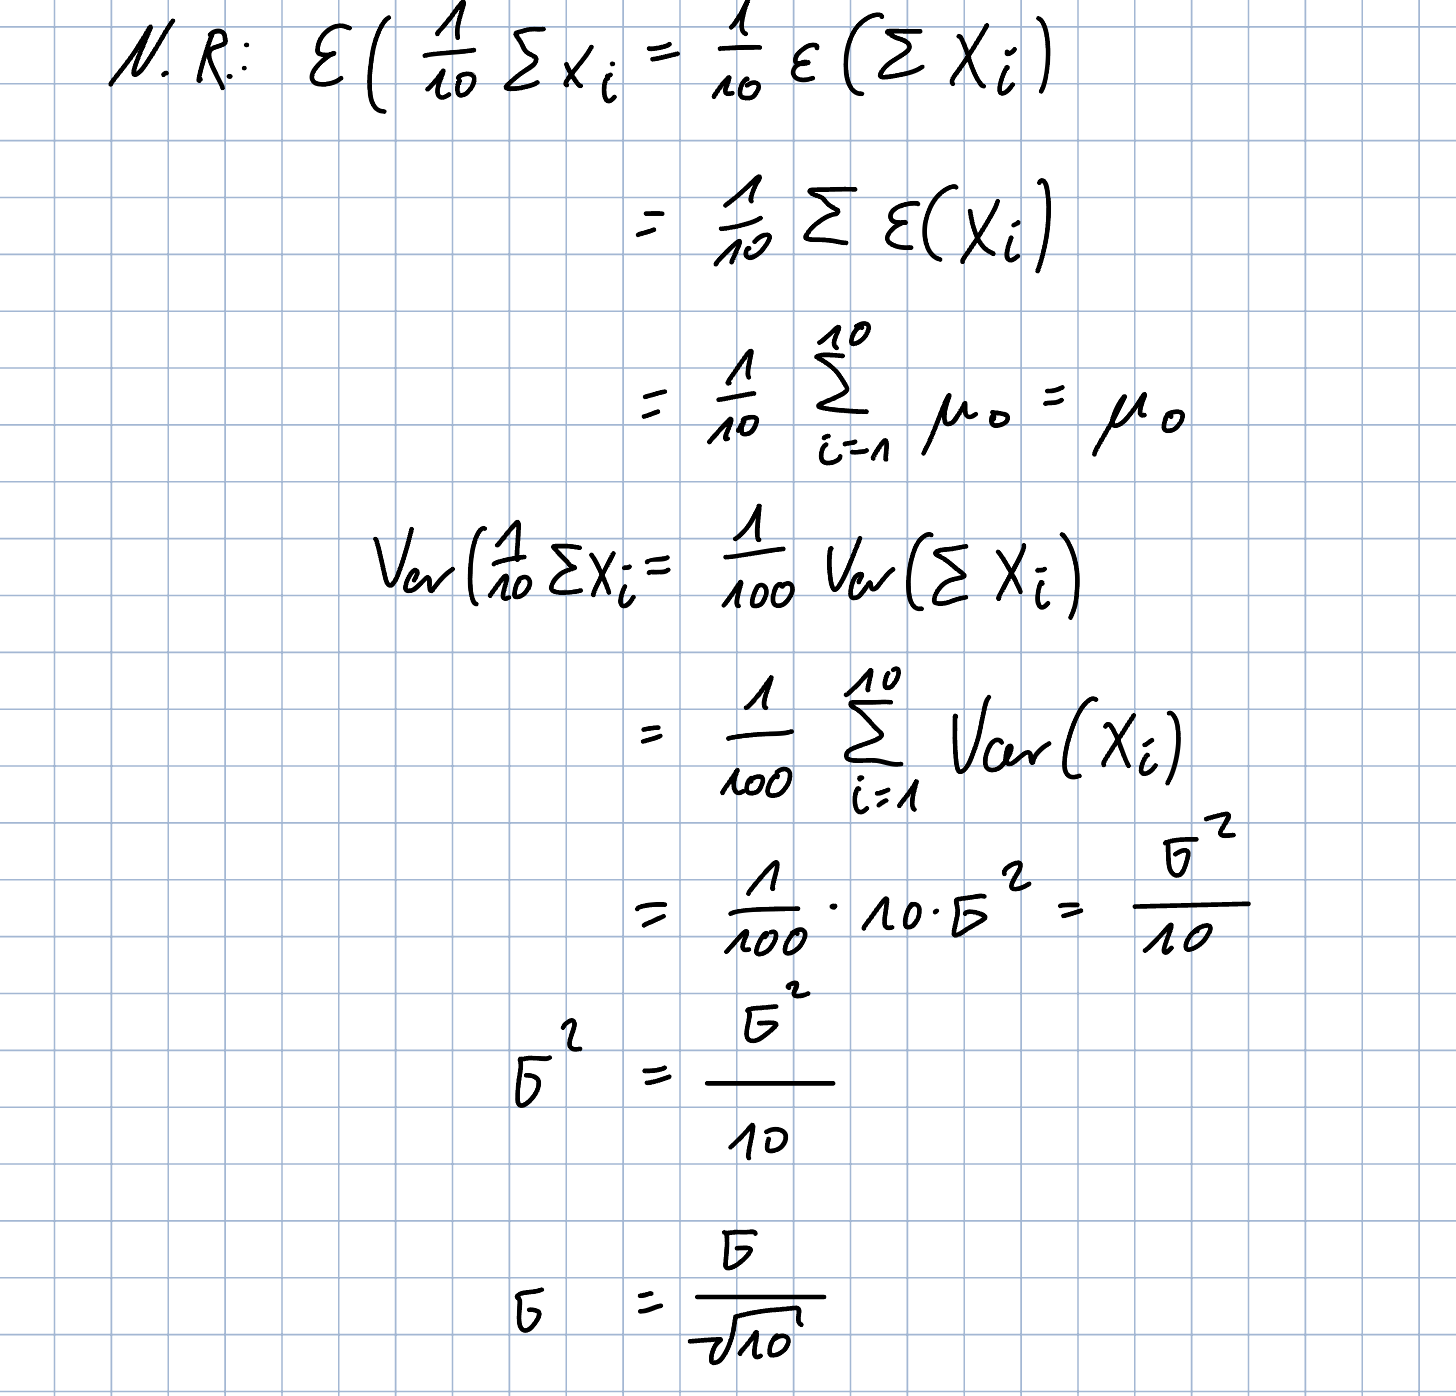 N.R.: ε( 1/10 Σ xᵢ = 1/10 ε(Σ Xᵢ)
= 1/10 Σ ε(Xᵢ)
= 1/10 Σ_{i=1}^{10} μ₀ = μ₀
Var(1/10 Σ Xᵢ = 1/100 Var(Σ Xᵢ)
= 1/100 Σ_{i=1}^{10} Var(Xᵢ)
= 1/100 · 10 · σ² = σ²/10
σ² = σ²/10
σ = σ/√10